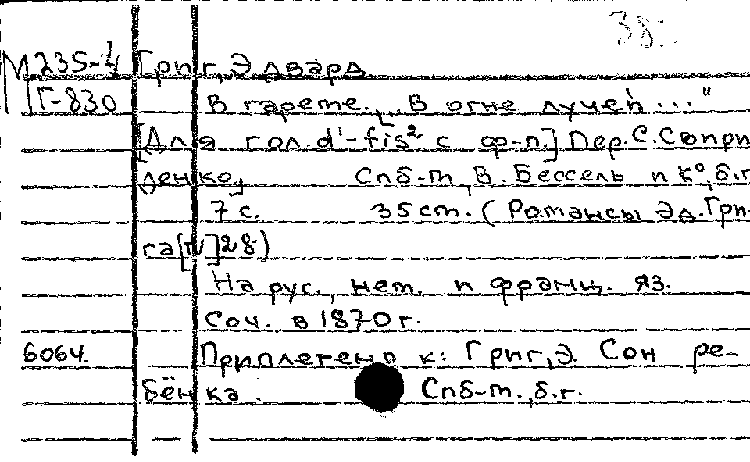 38
М 235-4 Григ, Эдвард
Г-830 В гареме. „В огне лучей ..."
[Для гол. d¹-fis² с ф-п.] Пер. С. Свири
денко, Спб-М, В. Бессель и К°, б.г.
7 с. 35 cm. (Романсы Эд. Гри-
га [№] 28)
На рус., нем. и франц. яз.
Соч. в 1870 г.
6064. Приплетено к: Григ, Э. Сон ре-
бёнка. Спб-М., б.г.